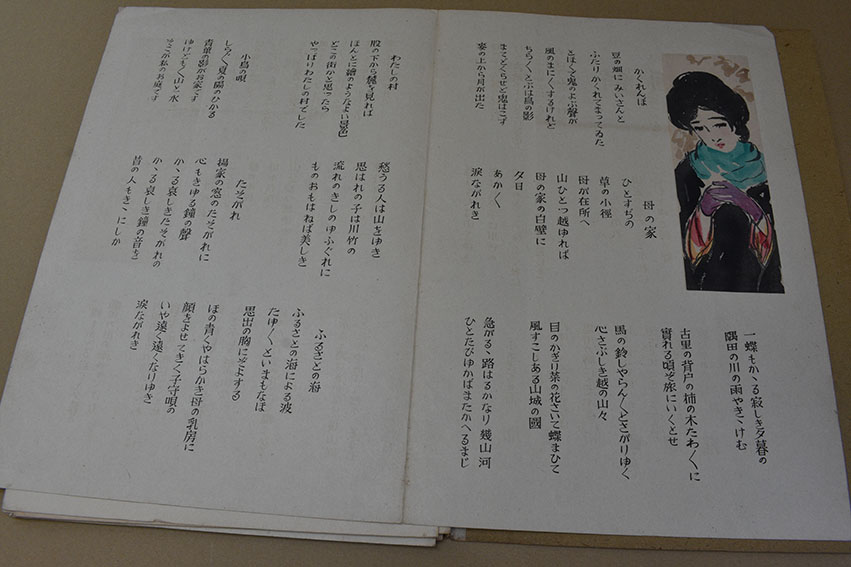 かくれんぼ
豆の畑にみいさんと
ふたりかくれてまつてゐた
とほくで鬼のよぶ聲が
風のまに〱するけれど
ちら〱とぶは鳥の影
まてどくらせど鬼はこず
森の上から月が出た
母の家
ひとすぢの
草の小徑
母が在所へ
山ひとつ越ゆれば
母の家の白壁に
夕日
あかく
涙ながれき
一蝶もかゝる寂しき夕暮の
隅田の川の雨やきゝけむ
古里の背戸の柿の木たわ〱に
實れる頃ぞ旅にいくとせ
馬の鈴しやらん〱とさがりゆく
心さぶしき越の山々
目のかぎり菜の花さいて蝶まひて
風すこしある山城の國
急がるゝ路はるかなり幾山河
ひとたびゆかばまたかへるまじ
わたしの村
股の下から麓を見れば
ほんとに繪のようなよい景色
どこの街かと思つたら
やつぱりわたしの村でした
小鳥の唄
しら〱夏の陽のひかる
青葉の影がお家です
ゆけども〱山と水
そこが私のお庭です
愁うる人は山をゆき
思はれの子は川竹の
流れのきしのゆふぐれに
ものおもはねば美しき
たそがれ
楊家の窓のたそがれに
心もきゆる鐘の聲
かゝる哀しきたそがれの
かゝる哀しき鐘の音を
昔の人もきゝにしか
ふるさとの海
ふるさとの海による波
たゆ〱といまもなほ
思出の胸にぞよする
ほの青くやはらかき母の乳房に
顔をよせてきく子守唄の
いや遠く遠くなりゆき
涙ながれき